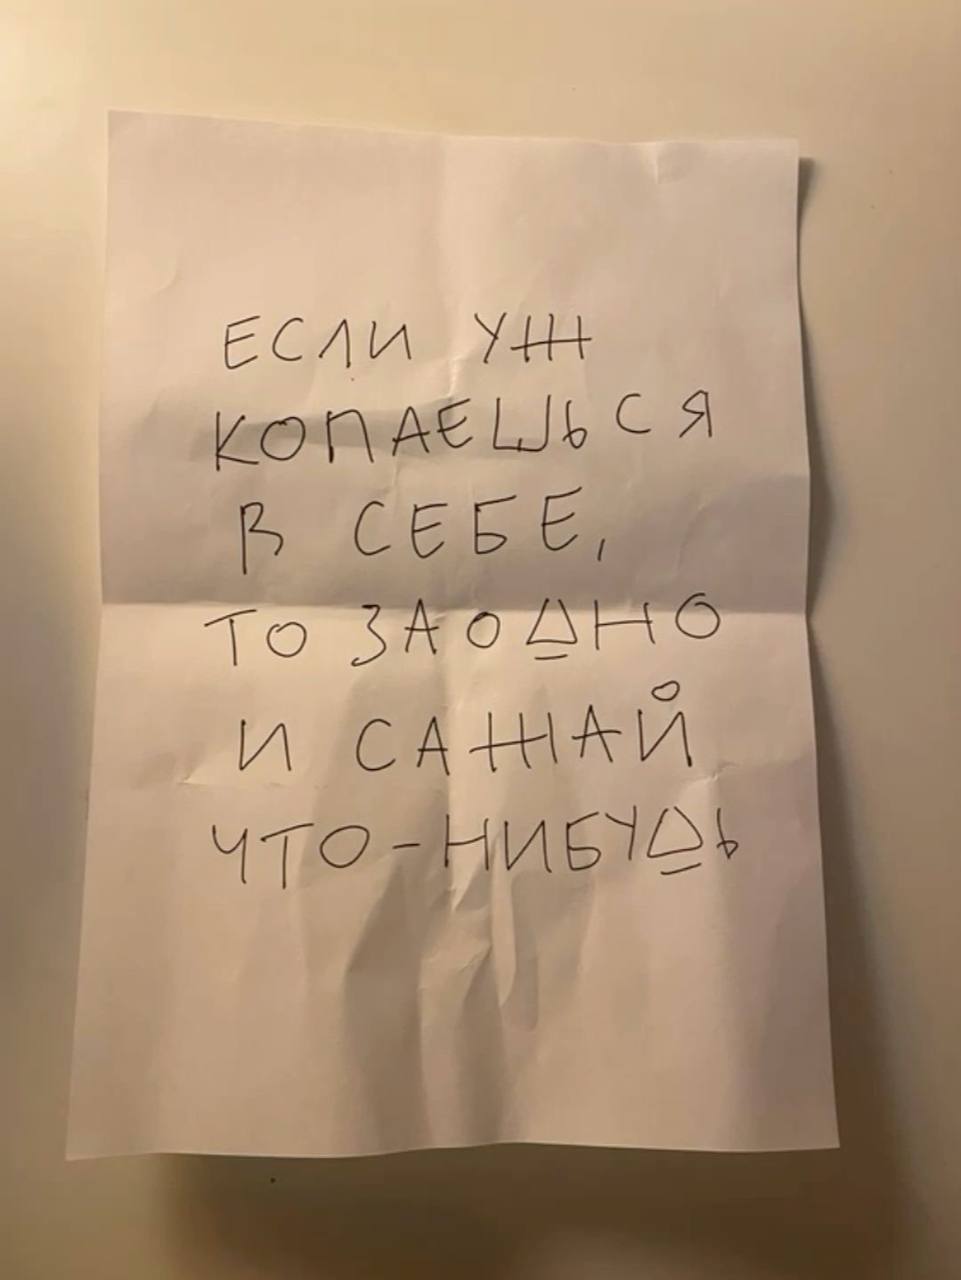 ЕСЛИ УЖ
КОПАЕШЬСЯ
В СЕБЕ,
ТО ЗАОДНО
И САЖАЙ
ЧТО-НИБУДЬ